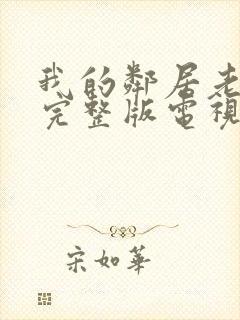 我的鄰居老
完整版電視
宋如華